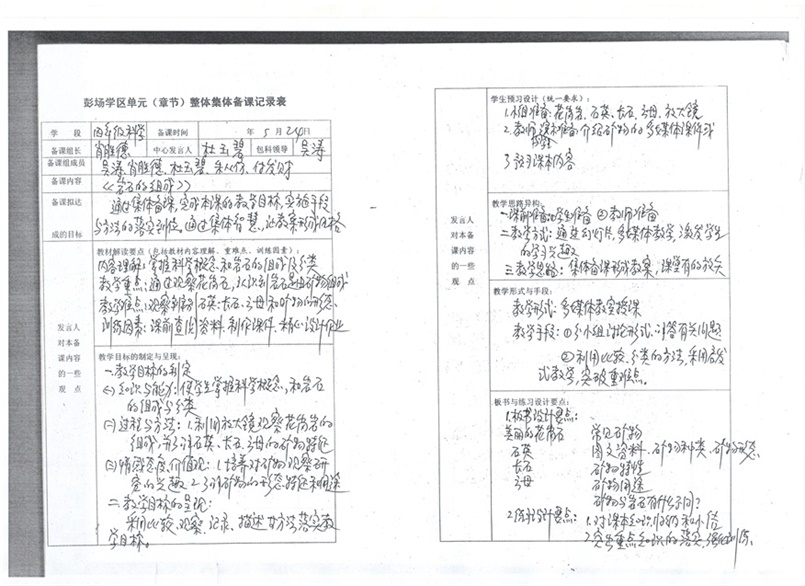 彭场学区单元（章节）整体集体备课记录表
学 段 四年级科学 备课时间 年 5 月 24 日
备课组长 肖胜德 中心发言人 杜玉碧 包科领导 吴涛
备课组成员 吴涛、肖胜德、杜玉碧、
备课内容 《岩石的组成》
备课拟达 通过集体备课，完成本课的教学目标，实施手段
成的目标 与方法的落实到位，通过集体智慧，让教案形成
教材解读要点（包括教材内容理解、重难点、训练因素）：
内容理解：掌握科学概念和岩石的组成及分类
教学重点：通过观察花岗岩，认识到岩石是由矿物组成
教学难点：观察辨别石英、长石、云母和矿物的形态
训练因素：课前查阅资料、制作课件、精心设计作业
发言人
对本备
课内容
的一些
观 点
教学目标的制定与呈现：
一、教学目标的制定
(一)知识与能力：使学生掌握科学概念，和岩石
的组成与分类
(二)过程与方法：1.利用放大镜观察花岗岩的
组成，并了解石英、长石、云母的矿物特征
(三)情感态度、价值观：1.培养对矿物观察研
究的兴趣 2.了解矿物的形态特征和用途
二、教学目标的呈现：
采用比较、观察、记录、描述等方法落实教
学目标。
学生预习设计（统一要求）：
1.准备花岗岩、石英、长石、云母、放大镜
2.教师课准备介绍矿物的多媒体课件或
3.预习课本内容
发言人
对本备
课内容
的一些
观 点
教学思路异构：
一、课前准备：①学生准备 ②教师准备
二、教学方式：通过幻灯片，多媒体教学，激发学生
的学习兴趣
三、教学思路：集体备课形成教案，课堂有的放矢
教学形式与手段：
教学形式：多媒体教室授课
教学手段：①分小组讨论形式，回答有关问题
②利用比较、分类的方法，采用启发
式教学，突破重难点。
板书与练习设计要点：
1.板书设计要点：
美丽的花岗岩 常见矿物
石英 图文资料、矿物种类、矿物形态、
长石 矿物特性
云母 矿物用途
矿物与岩石有什么不同？
2.练习设计要点：1.对课本知识归纳和小结
2.突出重点知识的落实，强化训练。